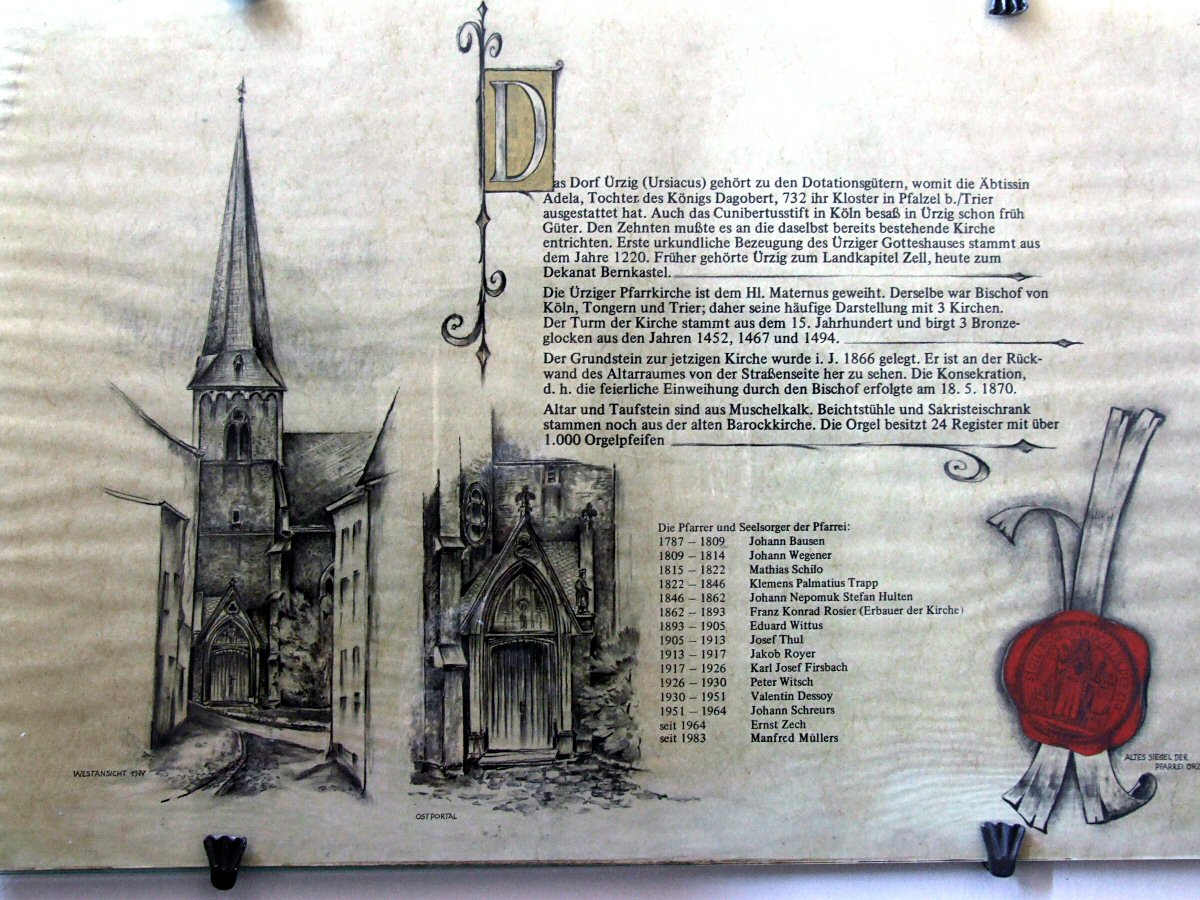 Das Dorf Ürzig (Ursiacus) gehört zu den Dotationsgütern, womit die Äbtissin
Adela, Tochter des Königs Dagobert, 732 ihr Kloster in Pfalzel b./Trier
ausgestattet hat. Auch das Cunibertusstift in Köln besaß in Ürzig schon früh
Güter. Den Zehnten mußte es an die daselbst bereits bestehende Kirche
entrichten. Erste urkundliche Bezeugung des Ürziger Gotteshauses stammt aus
dem Jahre 1220. Früher gehörte Ürzig zum Landkapitel Zell, heute zum
Dekanat Bernkastel.
Die Ürziger Pfarrkirche ist dem Hl. Maternus geweiht. Derselbe war Bischof von
Köln, Tongern und Trier; daher seine häufige Darstellung mit 3 Kirchen.
Der Turm der Kirche stammt aus dem 15. Jahrhundert und birgt 3 Bronze-
glocken aus den Jahren 1452, 1467 und 1494.
Der Grundstein zur jetzigen Kirche wurde i. J. 1866 gelegt. Er ist an der Rück-
wand des Altarraumes von der Straßenseite her zu sehen. Die Konsekration,
d. h. die feierliche Einweihung durch den Bischof erfolgte am 18. 5. 1870.
Altar und Taufstein sind aus Muschelkalk. Beichtstühle und Sakristeischrank
stammen noch aus der alten Barockkirche. Die Orgel besitzt 24 Register mit über
1.000 Orgelpfeifen
Die Pfarrer und Seelsorger der Pfarrei:
1787 – 1809 Johann Bausen
1809 – 1814 Johann Wegener
1815 – 1822 Mathias Schilo
1822 – 1846 Klemens Palmatius Trapp
1846 – 1862 Johann Nepomuk Stefan Hulten
1862 – 1893 Franz Konrad Rosier (Erbauer der Kirche)
1893 – 1905 Eduard Wittus
1905 – 1913 Josef Thul
1913 – 1917 Jakob Royer
1917 – 1926 Karl Josef Firsbach
1926 – 1930 Peter Witsch
1930 – 1951 Valentin Dessoy
1951 – 1964 Johann Schreurs
seit 1964 Ernst Zech
seit 1983 Manfred Müllers
WESTANSICHT
OSTPORTAL
ALTES SIEGEL DER
PFARREI ÜRZ